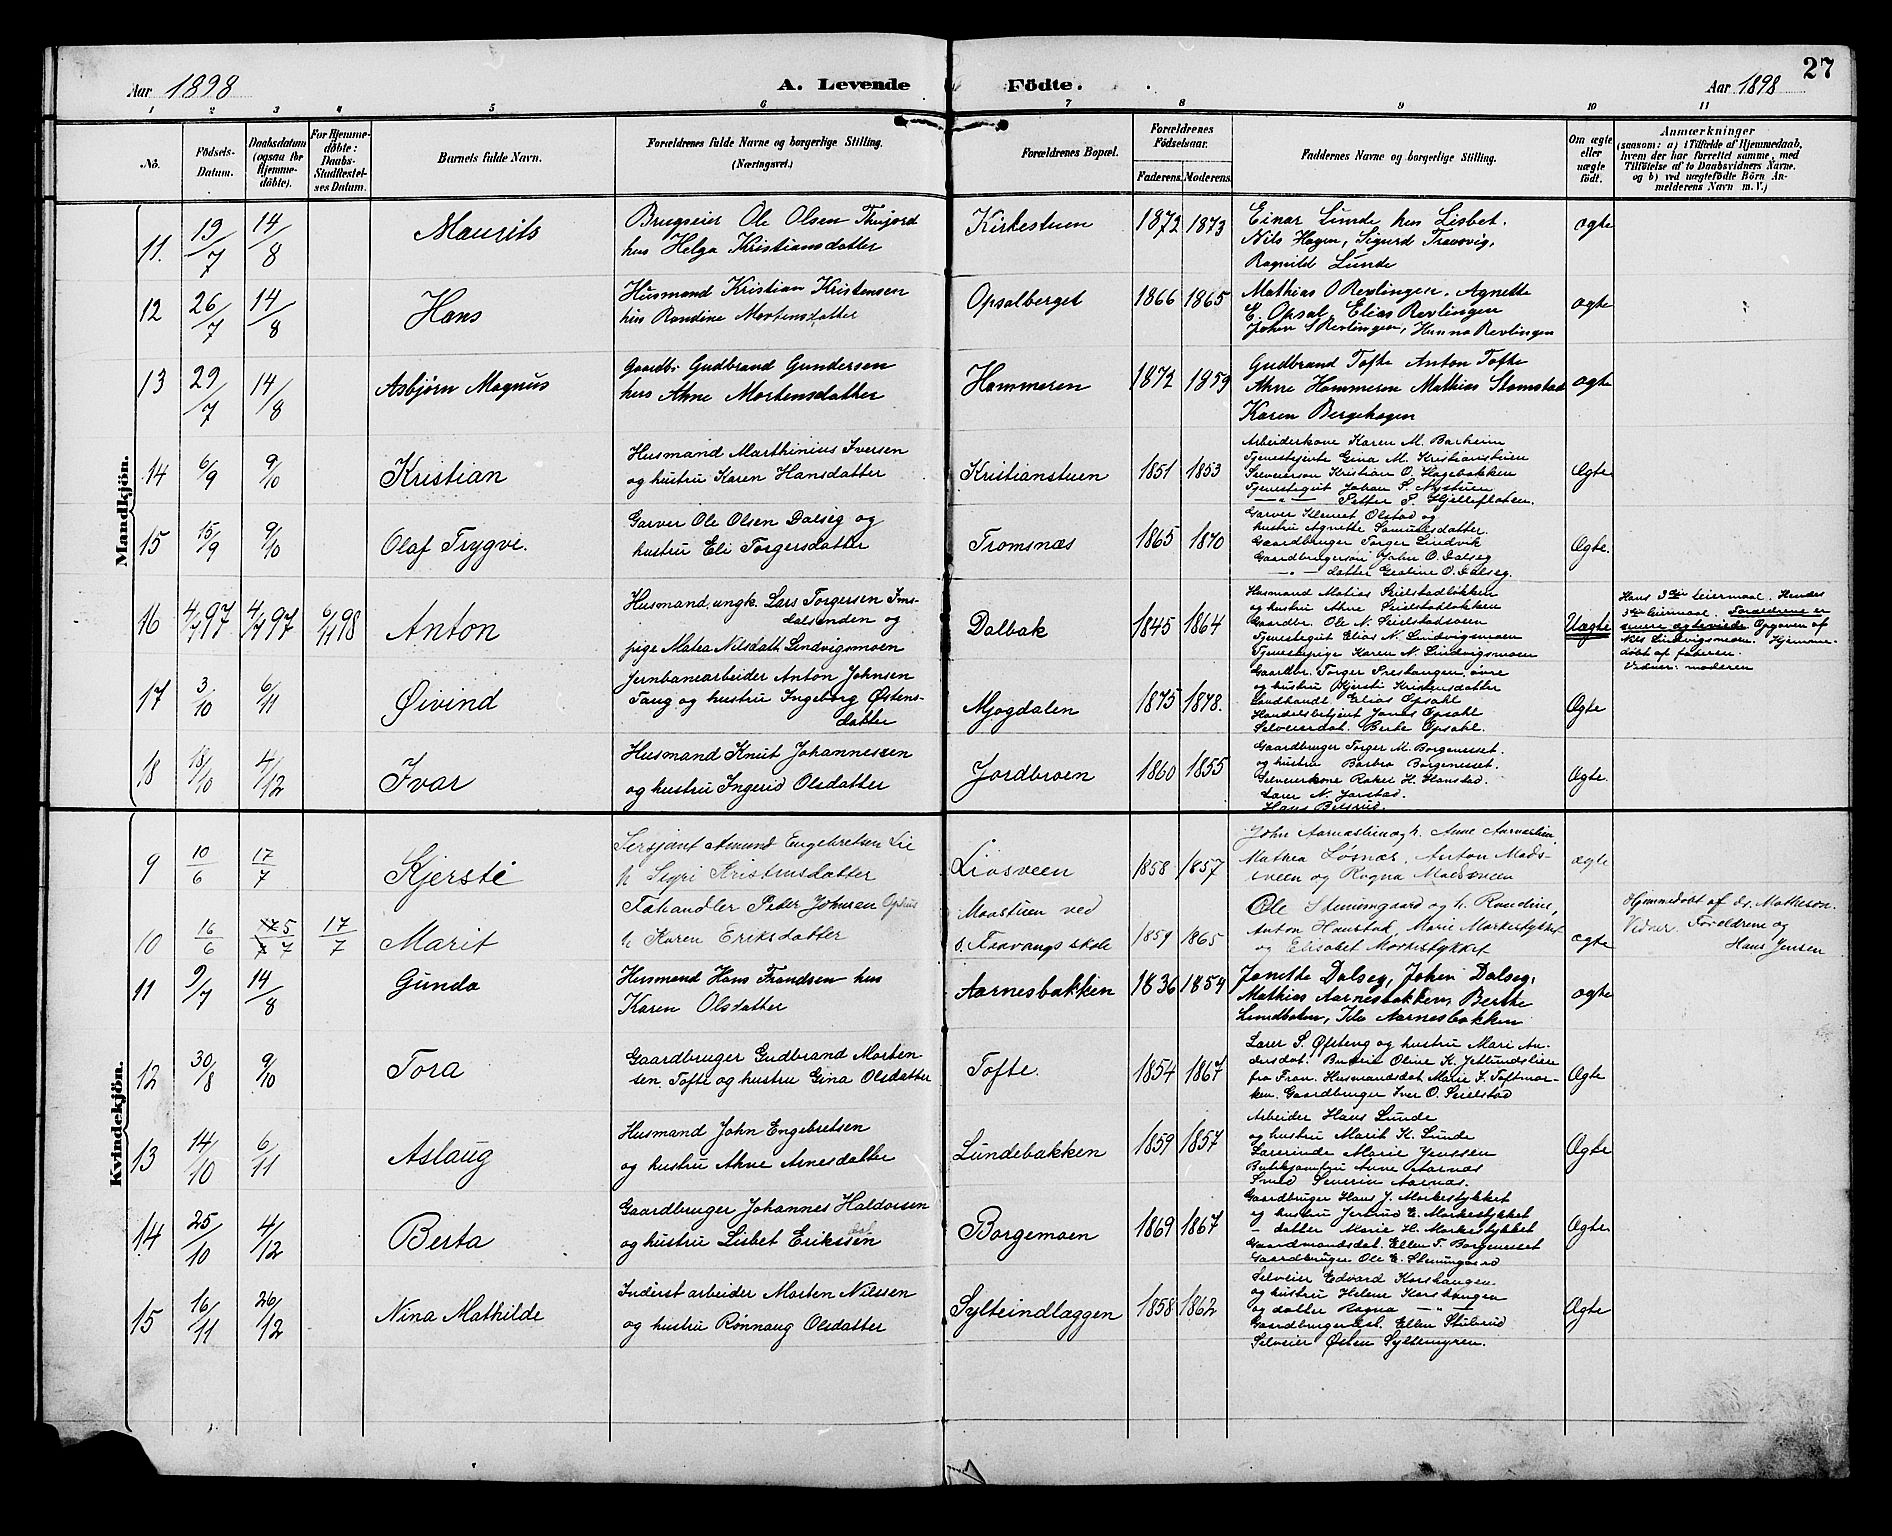 27
Aar 1898
A. Levende Födte.
Aar 1898
1 2 3 4 5 6 7 8 9 10 11
No.
Födsels-Datum.
Daabsdatum (ogsaa for Hjemmedöbte).
For Hjemmedöbte: Daabs-Stadfæstelses Datum.
Barnets fulde Navn.
Forældrenes fulde Navne og borgerlige Stilling.
(Næringsvei.)
Forældrenes Bopæl.
Forældrenes Födselsaar.
Faderens. Moderens.
Faddernes Navne og borgerlige Stilling.
Om ægte eller uægte födt.
Anmærkninger
(saasom: a) i Tilfælde af Hjemmedaab,
hvem der har forrettet samme, med
Tilföielse af to Daabsvidners Navne.
og b) ved uægtefödte Börn An-
melderens Navn m. V.)
Mandkjön.
11. 19/7 14/8 Maurits
Brugseier Ole Olsen
hus Helga Kristiansdatter
Kirkestuen 1872 1873
Einar Lunde hus Lisbet.
Nils Hagen, Sigurd
Ragnild Lunde
ægte
12 26/7 14/8 Hans
Husmand Kristian Kristensen
hus Randine Mortensdatter
Opsalberget 1866 1865
Mathias O Revlingen. Agnette
E. Opsal. Elias Revlingen
John S Revlingen, Hanna Revlingen
ægte
13 29/7 14/8 Asbjørn Magnus
Gaardbr Gudbrand Gundersen
hus Ahne Mortensdatter
Hammeren 1872 1859
Gudbrand Tofte Anton Tofte
Ahne Hammeren Mathias Stomstad
Karen Bergehagen
ægte
14 6/9 9/10 Kristian
Husmand Marthinius Iversen
og hustru Karen Hansdatter
Kristianstuen 1851 1853
Arbeiderkone Karen M. Barheim
Tjenestejente Gina M. Kristianstuen
Selveiersøn Kristian O. Hagebakken
Tjenestegut Johan S. Nystuen
—"— Petter P. Hjelleflaten.
Ægte
15 15/9 9/10 Olaf Trygve.
Garver Ole Olsen Dalseg og
hustru Eli Torgersdatter
Tromsnæs 1865 1870
Garver Klemet Olstad og
hustru Agnette Samuelsdatter.
Gaardbruger Torger Lindvik
Gaardbrugersøn John O. Dalseg
—"— datter Geoline O. Dalseg.
Ægte.
16 4/7 97. 4/7 97 6/11 98 Anton
Husmand, ungk. Lars Torgersen Ims-
dalsenden og
pige Matea Nilsdatt Lindvigsmoen
Dalbak 1845 1864
Husmand Matias Seielstadløkken
og hustru Ahne Seielstadløkken
Gaardbr. Ole N. Seielstadsveen
Tjenestegut Elias N. Lindvigsmoen
Tjenestepige Karen N. Lindvigsmoen
Uægte
Hans 3die leiermaal. Hendes
3die leiermaal. Forældrene er
senere ægteviede Opgaven af
Nils Lindvigsmoen. Hjemme-
døbt af faderen.
Vidner: moderen
17 3/10 6/11 Øivind
Jernbanearbeider Anton Johnsen
Taug og hustru Ingeborg Østens-
datter
Mjogdalen 1875 1878.
Gaardbr. Torger Prestangen, øvre
og hustru Kjersti Kristensdatter
Landhandl Elias Opsahl
Handelsbetjent Jonas Opsahl
Selveierdat. Berte Opsahl.
Ægte
18 18/10 4/12 Ivar
Husmand Knut Johannessen
og hustru Ingerid Olsdatter
Jordbroen 1860 1855
Gaardbruger Torger M. Borgenesset.
og hustru Barbra Borgenesset.
Selveierkone Rakel H. Hanstad.
Lærer N. Jorstad.
Hans Bilsrud
Ægte.
Kvindekjön.
9 10/6 17/7 Kjersti
Sersjant Amund Engebretsen Lie
h Sigri Kristensdatter
Liosveen 1858 1857
John Aarnæslien og h. Anne Aarnæslien
Mathea Løsnæs, Anton Mads-
sveen og Ragna Madssveen
ægte
10 16/6 17/7 Marit
Fæhandler Peder Johnsen
h Karen Eriksdatter
Moastuen ved
d. Favangs skole 1859 1865
Ole Steningaard og h. Randine,
Anton Hanstad, Marie Morkestykket
og Elisabet Morkestykket
ægte
Hjemmedøbt af dr. Matheson.
Vidner: Forældrene og
Hans Jensen
11 9/7 14/8 Gunda
Husmand Hans Frandsen hus
Karen Olsdatter
Aarnesbakken 1836 1854
Janette Dalseg, Johan Dalseg,
Mathias Aarnesbakken, Berthe
Lundbolen, Ida Aarnesbakken
ægte
12 30/8 9/10 Tora
Gaardbruger Gudbrand Morten-
sen Tofte og hustru Gina Olsdatter
Tofte. 1854 1867
Lærer S. Opsteng og hustru Mari An-
dersdat. Budeie Oline K. Jetlundslien
fra Fron. Husmandsdat Marie S. Toftmor-
ken. Gaardbruger Iver O. Seielstad
Ægte
13 14/10 6/11 Aslaug
Husmand John Engebretsen
og hustru Ahne Arnesdatter
Lundebakken 1859 1857
Arbeider Hans Lunde
og hustru Marit K. Lunde
Lærerinde Marie Jenssen
Butikjomfru Anne Aarnæs
Smed Severin Aarnæs.
Ægte
14 25/10 4/12 Berta
Gaardbruger Johannes Haldorsen
og hustru Lisbet Erikssen
Borgemoen 1869 1867
Gaardbruger Hans J. Morkestykket
og hustru Jertrud E. Morkestykket
- datter Marie H. Morkestykket
Gaardmandsdat. Ellen T. Borgenesset
Gaardbruger Ole E. Steningaard
Ægte
15 16/11 26/12 Nina Mathilde
Inderst arbeider Morten Nilssen
og hustru Rønnaug Olsdatter
Sylteindlæggen 1858 1862
Selveier Edvard Korshaugen
og hustru Helene Korshaugen
og datter Ragna —"—
Gaardbrugerdat. Ellen Stubrud
Selveier Østen Syltemyren.
Ægte